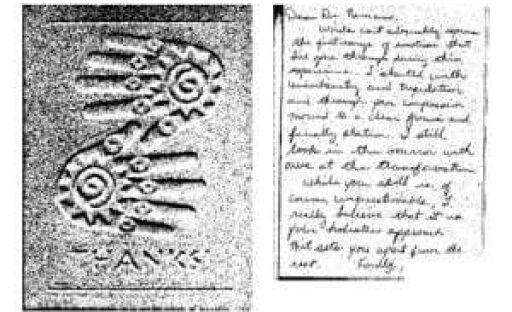 THANKS
Dear Dr. Romano,
Words can't adequately express
the full range of emotion that
led you through during this
experience. I started with
uncertainty and trepidation
and through your compassion
moved to a clear focus and
finally elation. I still
look in the mirror with
awe at the transformation
While your skill is of
course unquestionable, I
really believe that it is
your holistic approach
that sets you apart from the
rest. Fondly,